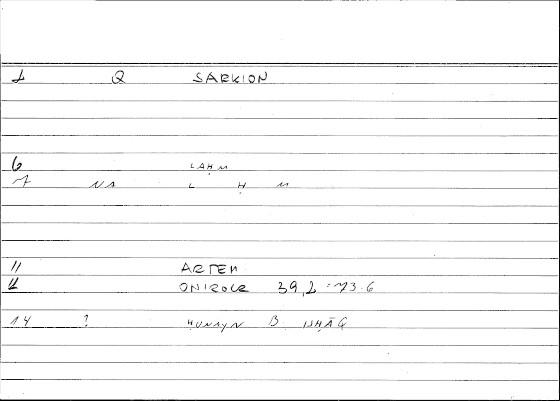 1 Q SARKION
6 LAḤM
7 NA L Ḥ M
11 ARTEM
12 ONIROCR 39,2 = 73.6
14 ? ḤUNAYN B. ISḤĀQ